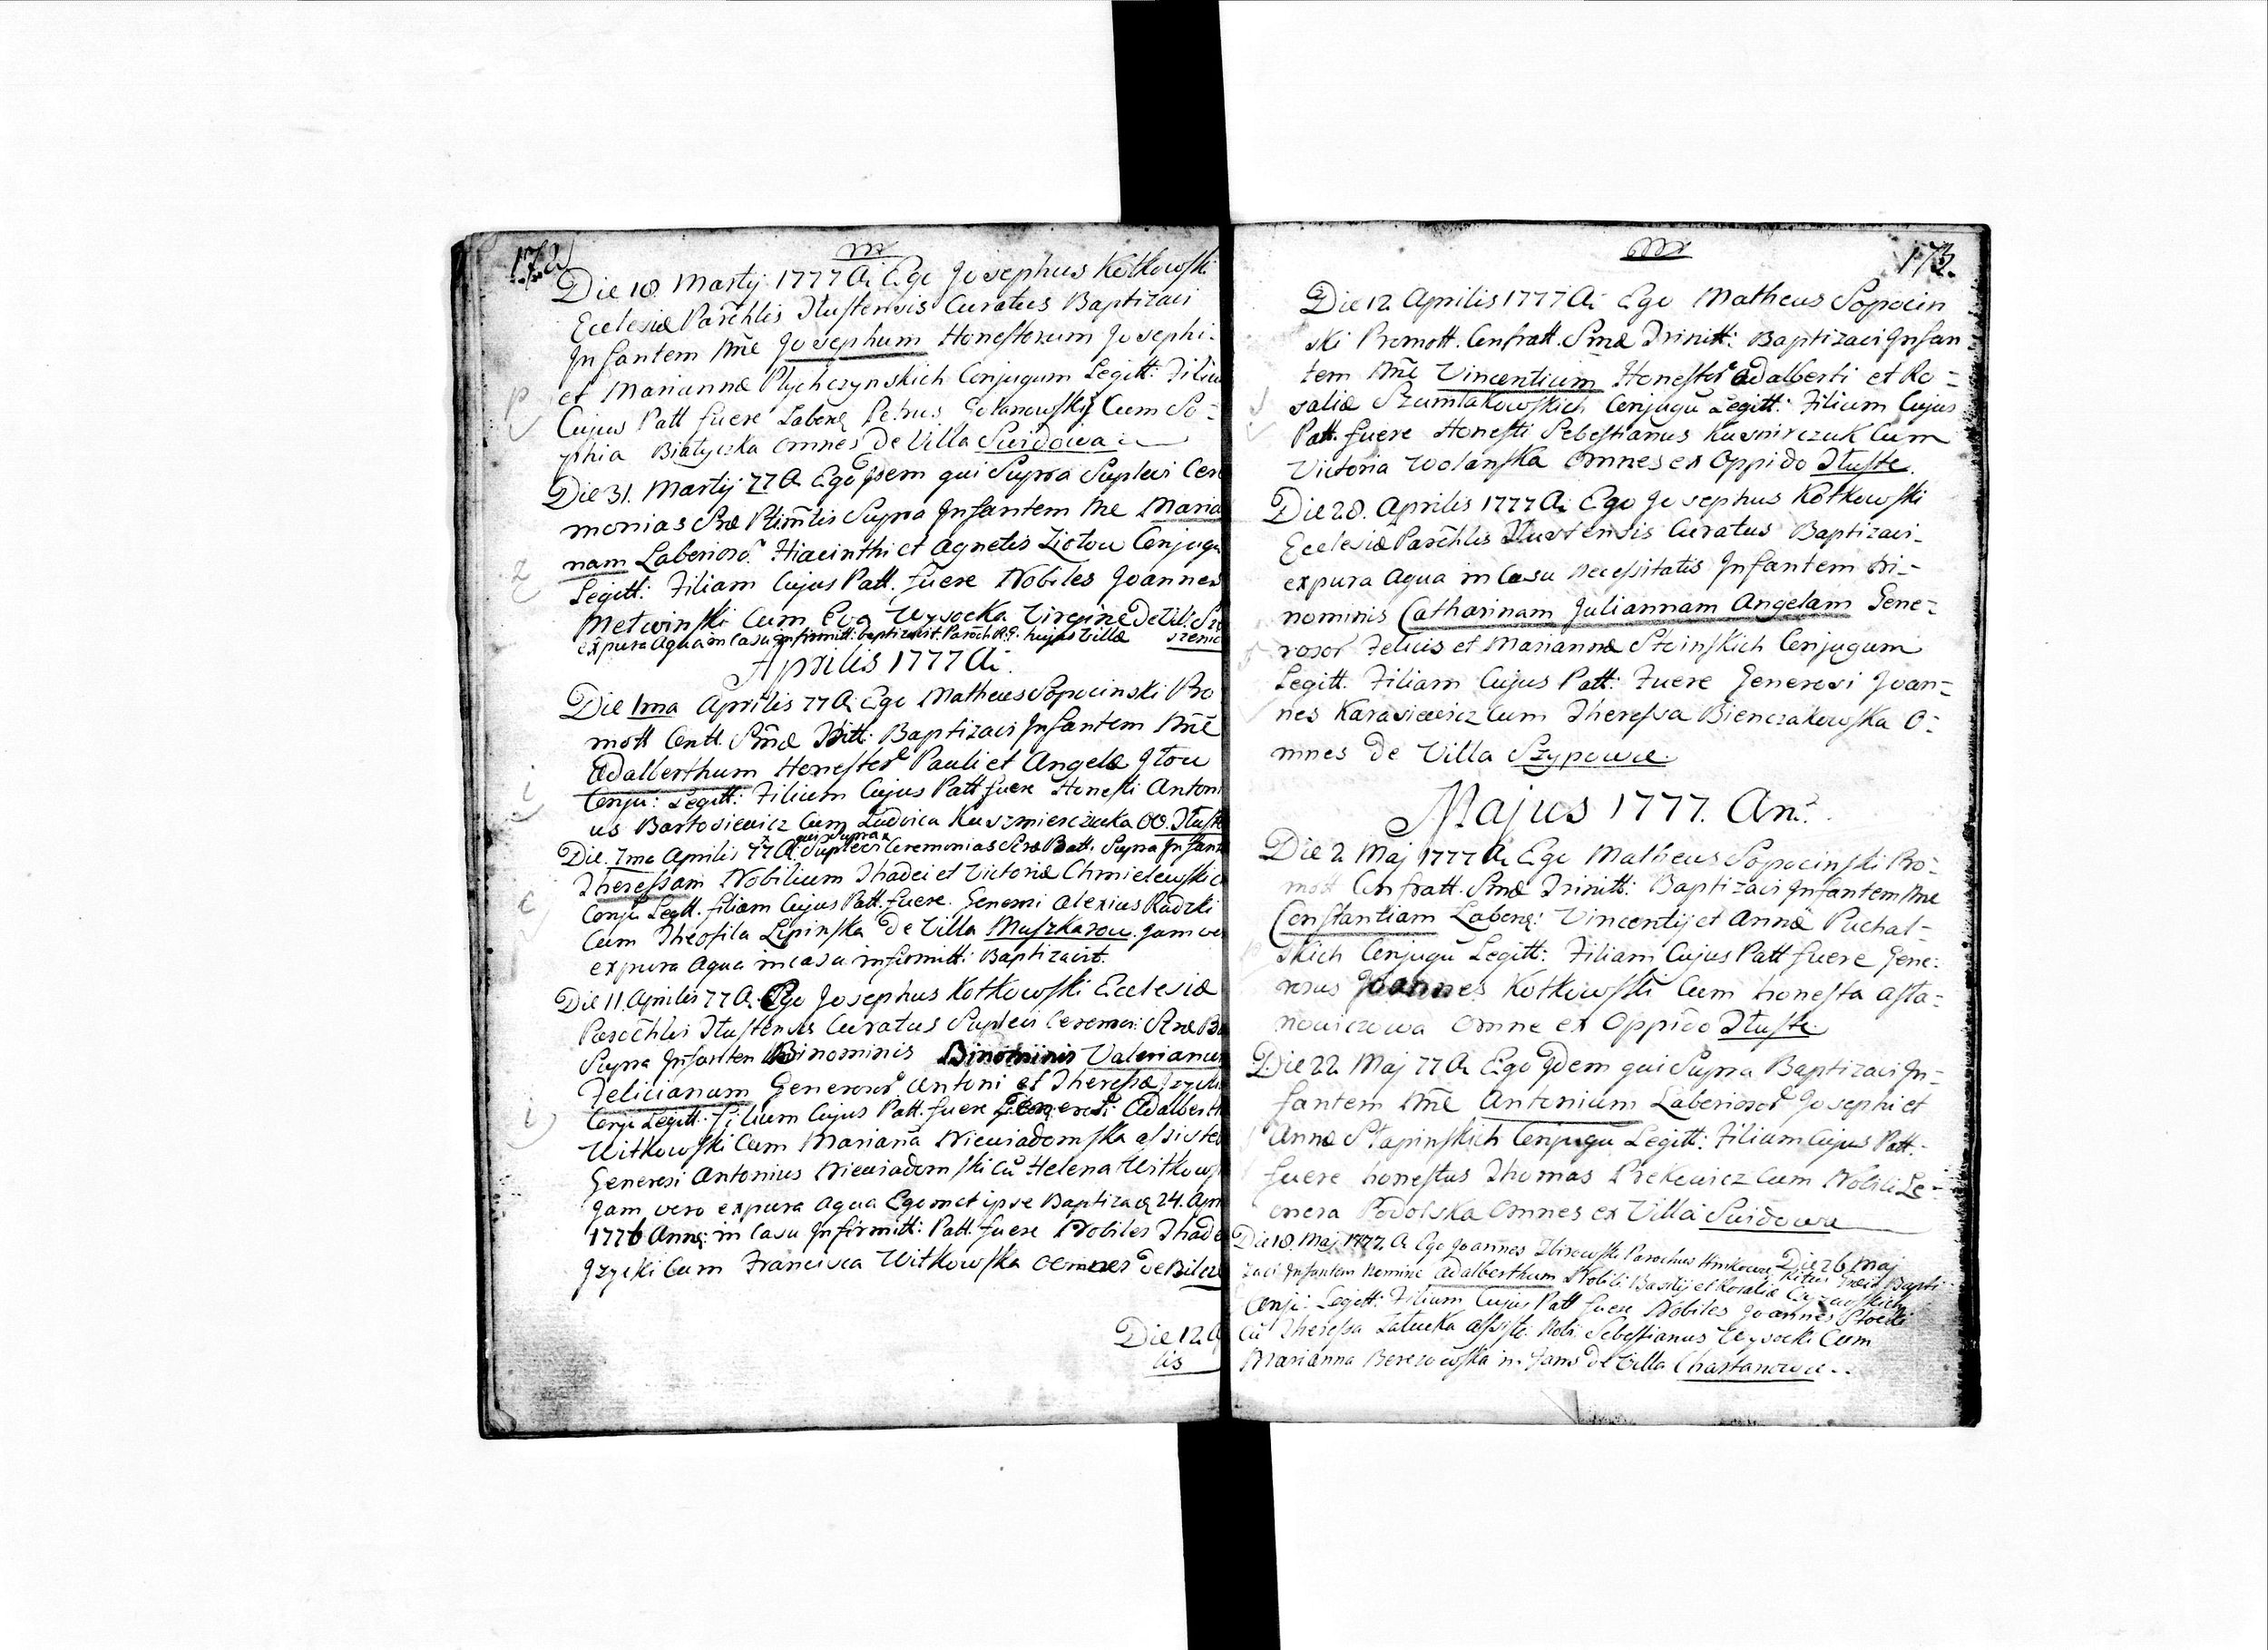 172
Die 18 Martij 1777 Ai Ego Josephus Kotkowski
Ecclesiæ Parchlis Tlustensis Curatus Baptizavi
Infantem Nne Josephum Honestorum Josephi
et Mariannæ Ptychczynskich Conjugum Legitt: Filiu
Cujus Patt fuere Labere Petrus Cum So=
phia Bialyczka omnes De Villa Swidowa
Die 31. Martij 77 A Ego Idem qui Supra Suplevi Cere
monias Supra Infantem Nne Maria
nam Laborioso. Hiacinthi et Agnetis Ziotow Conjugu
Legitt: Filiam Cujus Patt. fuere Nobiles Joannes
Metwinski Cum Eva Wysocka Virgine De Vil:
ex pura Aqua in Casu Infirmitt: baptizavit Paroch R.G. hujus Villæ
Aprilis 1777 Ai.
Die 1ma Aprilis 77 A Ego Matheus Sopocinski Pro
mott Baptizavi Infantem Nne
Adalberthum Honestor Pauli et Angelæ
Conju: Legitt: Filium Cujus Patt fuere Honesti Antoni
us Bartosiewicz Cum Ludvica Kuszmierczuka OO. Tluste
Die 7ma Aprilis 77 A qui supra Suplevi Ceremonias Supra Infant
Theressam Nobilium Thadei et Victoriæ Chmielewskic
Conju Legtt. filiam Cujus Patt. fuere. Alexius Radzki
Cum Theofila Lipinska De Villa Muszkarow. Jam ve
ex pura Aqua in casu infirmitt: Baptizavit.
Die 11 Aprilis 77 A. Ego Josephus Kotkowski Ecclesiæ
Parochlis Tlustensis Curatus Suplevi Ceremo:
Supra Infanten Binominis Binominis Valerianum
Felicianum Generosor Antoni et Theressæ
Conju Legitt. Filium Cujus Patt. fuere Generosi Adalberth
Witkowski Cum Mariana Niewiadomska
Generosi Antonius Niewiadomski cu Helena Witkows
Jam vero ex pura Aqua Egomet ipse Baptizavi 24. Apri
1776 Anno: in Casu Infirmitt: Patt. fuere Nobiles Thade
Cum Francisca Witkowska omnes de
Die 12 A
lis
173.
Die 12 Aprilis 1777 Ai Ego Matheus Sopocin
ski Promott. Confratt. Smæ Trinitt: Baptizavi Infan=
tem Nne Vincentium Honestor Adalberti et Ro=
saliæ Szumlakowskich Conjugu Legitt: Filium Cujus
Patt. fuere Honesti Sebestianus Kusnirczuk Cum
Victoria Wolanska Omnes ex Oppido Tluste.
Die 28. Aprilis 1777 Ai Ego Josephus Kotkowski
Ecclesiæ Parochlis Tlustensis Curatus Baptizavi
ex pura Aqua in Casu Necessitatis Infantem Tri=
nominis Catharinam Juliannam Angelam Gene=
rosor Felicis et Mariannæ Stoinskich Conjugum
Legitt. Filiam Cujus Patt: Fuere Generosi Joan=
nes Karasiewicz Cum Theressa Bienczakowska O=
mnes de Villa Szypowce.
Majus 1777. An.
Die 2 Maj 1777 A Ego Matheus Sopocinski Pro=
mott Confratt. Smæ Trinitt: Baptizavi Infantem Nne
Constantiam Labore: Vincentij et Annæ Puchal=
skich Conjugu Legitt: Filiam Cujus Patt fuere Gene:
rosus Joannes Kotkowski Cum honesta Asta=
nowiczowa Omne ex Oppido Tluste.
Die 22 Maj 77 A Ego Idem qui Supra Baptizavi In=
fantem Nne Antonium Laboriosor Josephi et
Annæ Stapinskich Conjugu Legitt: Filium Cujus Patt.
fuere honestus Thomas Prekewicz Cum Nobili Le=
onora Podolska Omnes ex Villa Swidowa
Die 18 Maj 1777 A Ego Joannes Parochus Die 26 Maj
zavi Infantem Nomine Adalberthum Nobili Basilij et Rosaliæ
Conju: Legitt: Filium Cujus Patt fuere Nobiles Joannes
cu Theressa assisti: Nobi. Sebestianus Wysocki Cum
Marianna Berezowska De Villa Chartanowce